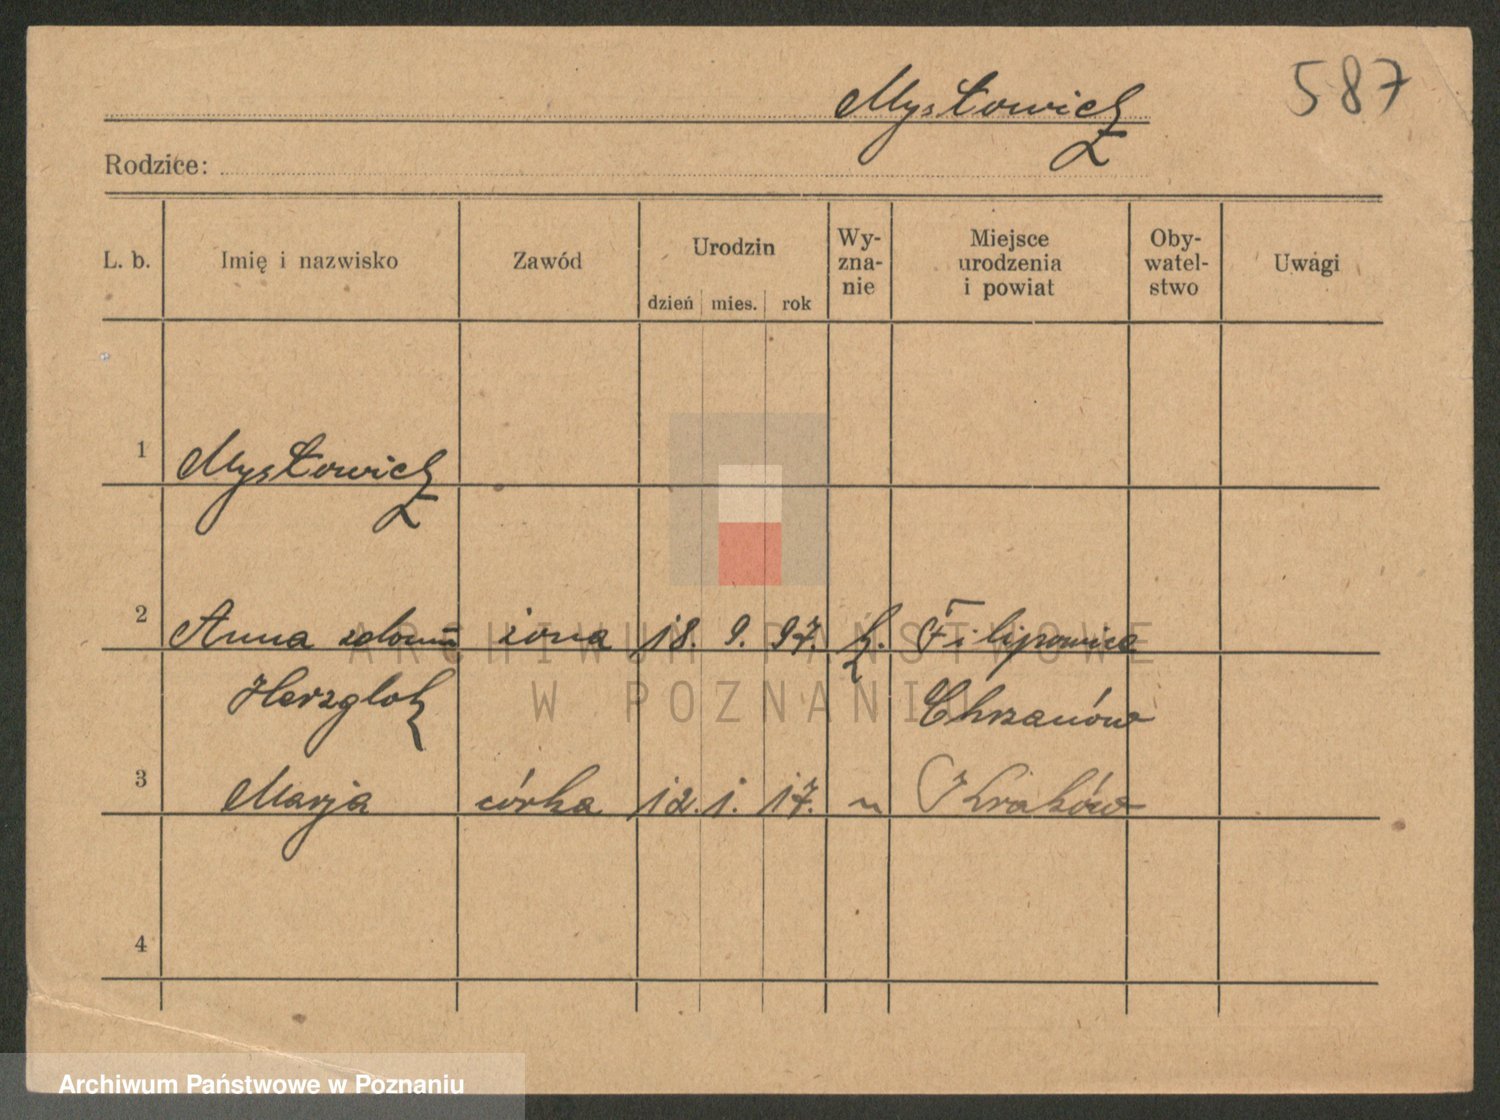 Mysłowicz
587
Rodzice:
L. b. Imię i nazwisko Zawód Urodzin Wy-zna-nie Miejsce urodzenia i powiat Oby-watel-stwo Uwagi
dzień mies. rok
1 Mysłowicz
2 Anna z domu żona 18. 9. 97. k. Filipowice
Herzglotz
Chrzanów
3 Marja córka 12. 1. 17. " Kraków
4
ARCHIWUM PAŃSTWOWE
W POZNANIU
Archiwum Państwowe w Poznaniu